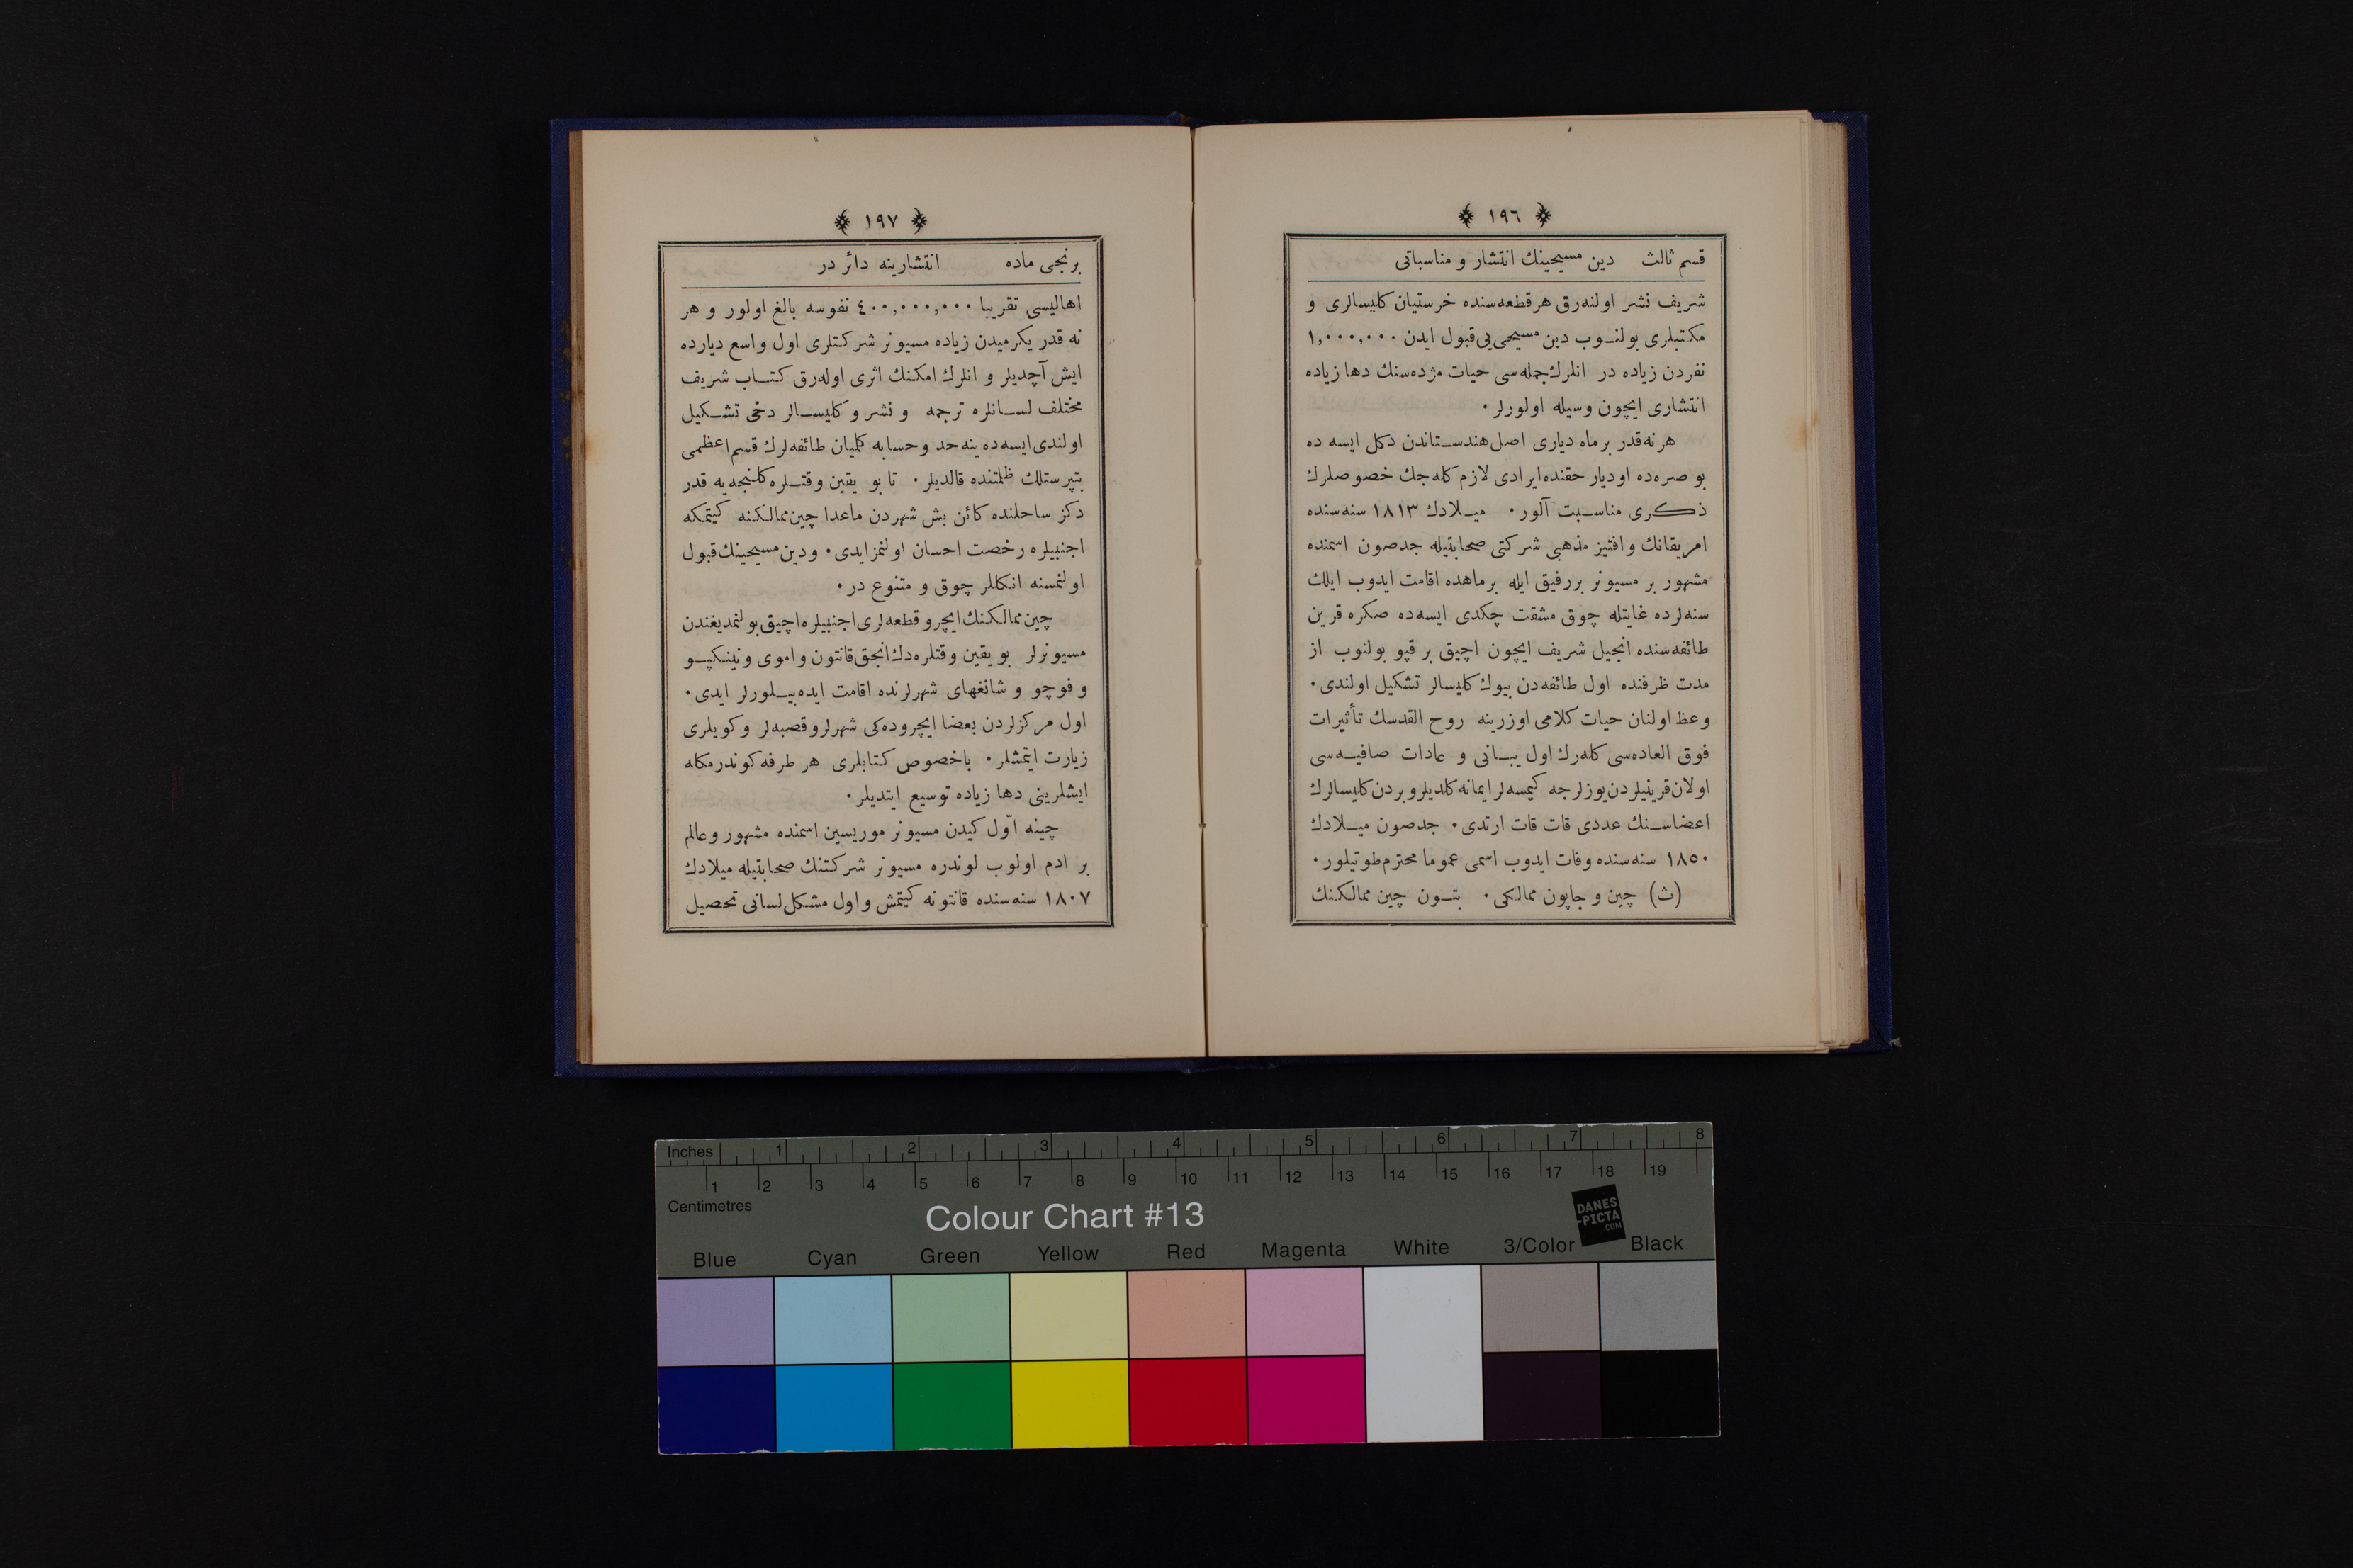 ١٩٦
قسم ثالث دين مسيحينك انتشار و مناسباتى
شريف نشر اولنه‌رق هر قطعه‌سنده خرستيان كليسالرى و
مكتبلرى بولنوب دين مسيحى يى قبول ايدن ١,٠٠٠,٠٠٠
نفردن زياده در انلرك جمله‌سى حيات مژده‌سنك دها زياده
انتشارى ايچون وسيله اولورلر٠
هر نه قدر برماه ديارى اصل هندستاندن دكل ايسه ده
بو صره‌ده او ديار حقنده ايرادى لازم كله‌جك خصوصلرك
ذكرى مناسبت آلور٠ ميلادك ١٨١٣ سنه‌سنده
امريقانك وافتيز مذهبى شركتى صحابتيله جدصون اسمنده
مشهور بر مسيونر بررفيق ايله برماهده اقامت ايدوب ايلك
سنه‌لرده غايتله چوق مشقت چكدى ايسه‌ده صكره قرين
طائفه‌سنده انجيل شريف ايچون اچيق بر قپو بولنوب از
مدت ظرفنده اول طائفه‌دن بيوك كليسالر تشكيل اولندى٠
وعظ اولنان حيات كلامى اوزرينه روح القدسك تأثيرات
فوق العاده‌سى كله‌رك اول يبانى و عادات صافيه‌سى
اولان قرينيلردن يوزلرجه كيمسه‌لر ايمانه كلديلر و بردن كليسالرك
اعضاسنك عددى قات قات ارتدى٠ جدصون ميلادك
١٨٥٠ سنه‌سنده وفات ايدوب اسمى عموما محترم طوتيلور٠
(ث) چين و جاپون ممالكى٠ بتون چين ممالكنك
١٩٧
برنجى ماده انتشارينه دائر در
اهاليسى تقريبا ٤٠٠,٠٠٠,٠٠٠ نفوسه بالغ اولور و هر
نه قدر يكرميدن زياده مسيونر شركتلرى اول واسع ديارده
ايش آچديلر و انلرك امكنك اثرى اوله‌رق كتاب شريف
مختلف لسانلره ترجمه و نشر و كليسالر دخى تشكيل
اولندى ايسه‌ده ينه حد و حسابه كلميان طائفه‌لرك قسم اعظمى
بتپرستلك ظلمتنده قالديلر٠ تا بو يقين وقتلره كلنجه‌يه قدر
دكز ساحلنده كائن بش شهردن ماعدا چين ممالكنه كيتمكه
اجنبيلره رخصت احسان اولنمز ايدى٠ ودين مسيحينك قبول
اولنمسنه انكللر چوق و متنوع در٠
چين ممالكنك ايچرو قطعه‌لرى اجنبيلره اچيق بولنمديغندن
مسيونرلر بو يقين وقتلره‌دك انجق قانتون و اموى و نينكپو
و فوچو و شانغهاى شهرلرنده اقامت ايده‌بيلورلر ايدى٠
اول مركزلردن بعضا ايچروده‌كى شهرلر و قصبه‌لر و كويلرى
زيارت ايتمشلر٠ باخصوص كتابلرى هر طرفه كوندرمكله
ايشلرينى دها زياده توسيع ايتديلر٠
چينه اوّل كيدن مسيونر موريسين اسمنده مشهور و عالم
بر ادم اولوب لوندره مسيونر شركتنك صحابتيله ميلادك
١٨٠٧ سنه‌سنده قانتونه كيتمش و اول مشكل لسانى تحصيل
Inches 1 2 3 4 5 6 7 8
1 2 3 4 5 6 7 8 9 10 11 12 13 14 15 16 17 18 19
Centimetres
Colour Chart #13
DANES
-PICTA
.COM
Blue Cyan Green Yellow Red Magenta White 3/Color Black